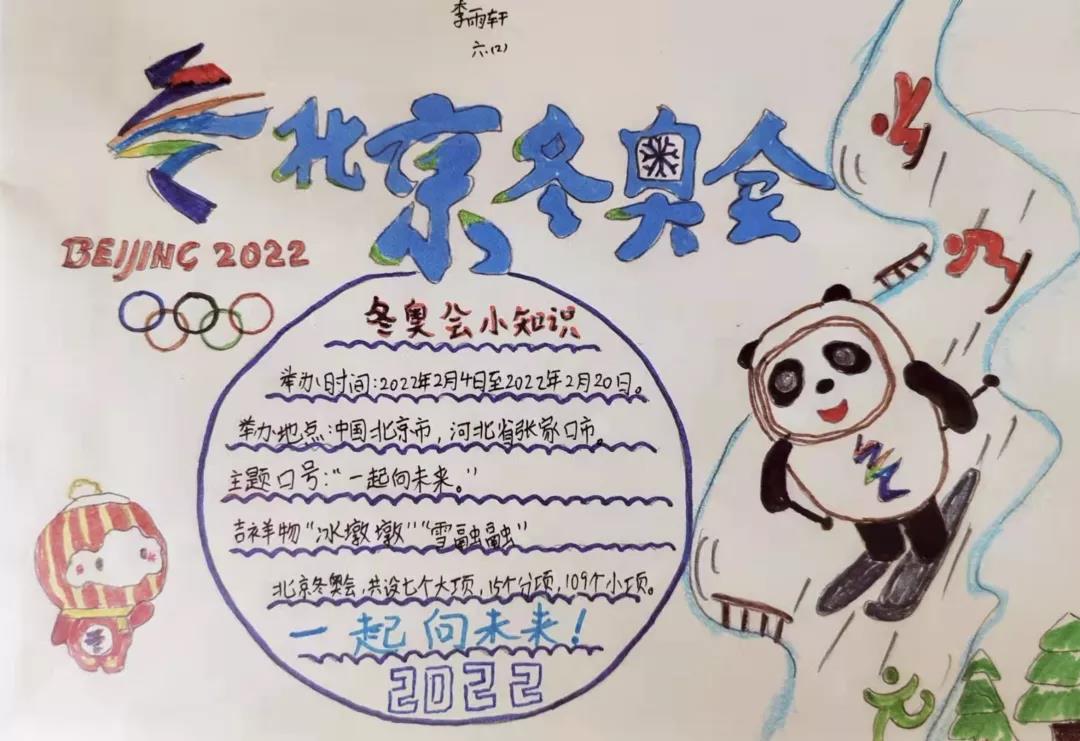 李雨轩
六.(2)
北京冬奥会
BEIJING 2022
冬奥会小知识
举办时间:2022年2月4日至2022年2月20日。
举办地点:中国北京市,河北省张家口市。
主题口号:“一起向未来。”
吉祥物“冰墩墩”“雪融融”
北京冬奥会,共设七个大项,15个分项,109个小项。
一起向未来!
2022